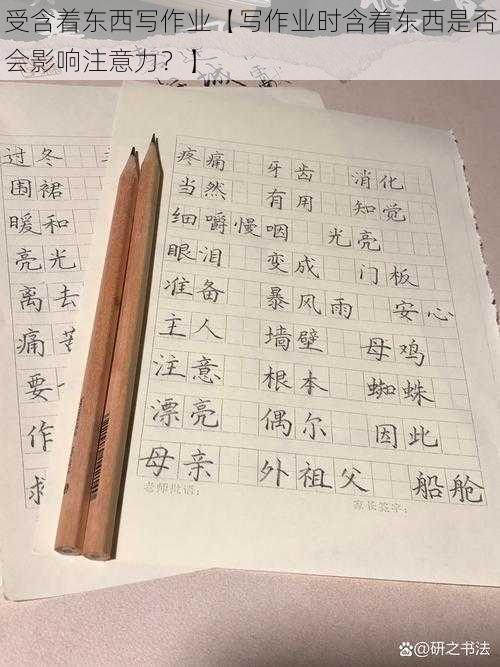 受含着东西写作业【写作业时含着东西是否
会影响注意力？】
过冬
围裙
暖和
亮光
离去
痛苦
要
作
求
疼痛 牙齿 消化
当然 有用 知觉
细嚼慢咽 光亮
眼泪 变成 门板
准备 暴风雨 安心
主人 墙壁 母鸡
注意 根本 蜘蛛
漂亮 偶尔 因此
母亲 外祖父 船舱
老师批语： 家长签字：
@研之书法